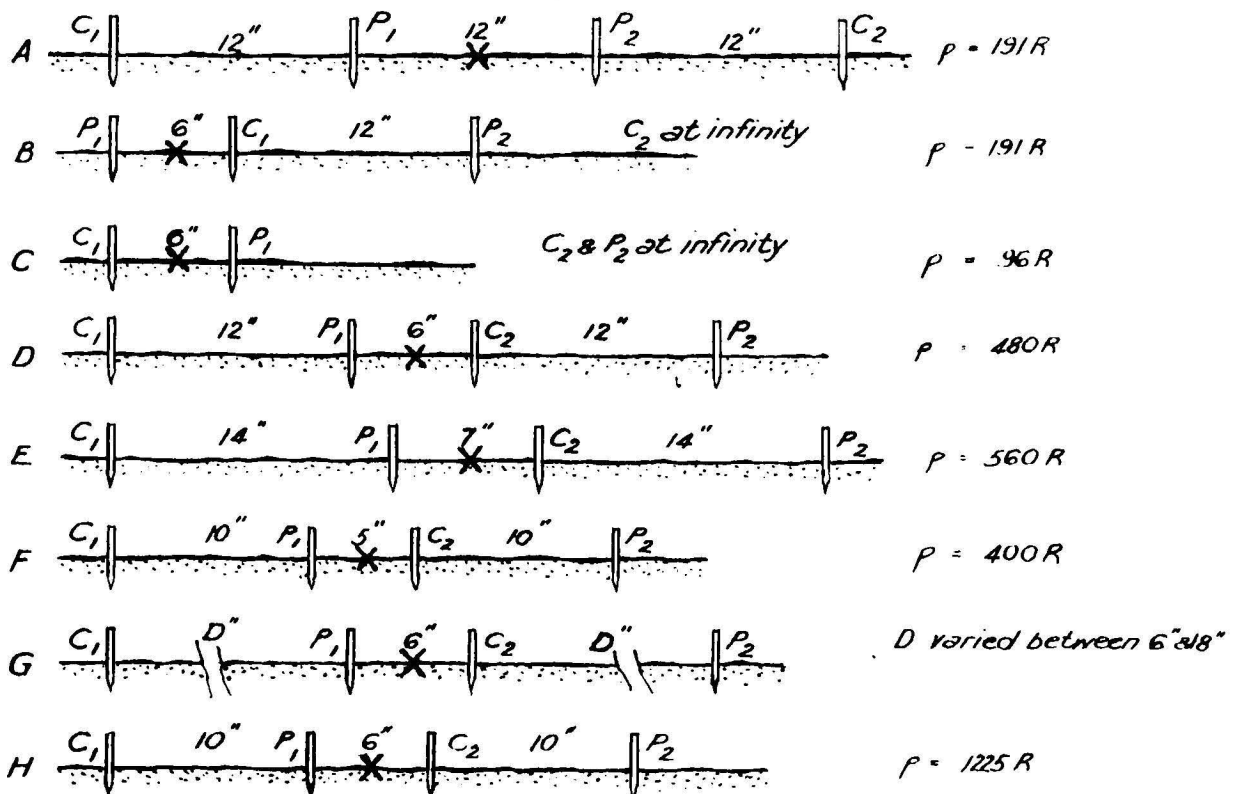 A C₁ 12" P₁ 12" P₂ 12" C₂ ρ = 191 R
B P₁ 6" C₁ 12" P₂ C₂ at infinity ρ - 191 R
C C₁ 6" P₁ C₂ & P₂ at infinity ρ = 96 R
D C₁ 12" P₁ 6" C₂ 12" P₂ ρ = 480 R
E C₁ 14" P₁ 7" C₂ 14" P₂ ρ = 560 R
F C₁ 10" P₁ 5" C₂ 10" P₂ ρ = 400 R
G C₁ D" P₁ 6" C₂ D" P₂ D varied between 6"&18"
H C₁ 10" P₁ 6" C₂ 10" P₂ ρ = 1225 R